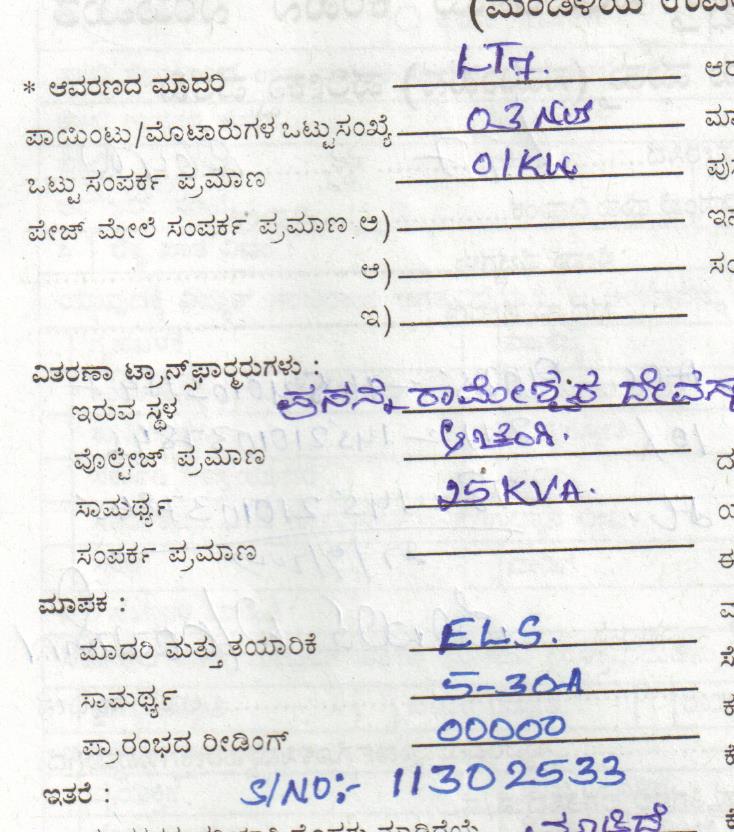 (ಮಂಡಳಿಯ
* ಆವರಣದ ಮಾದರಿ LT7.
ಪಾಯಿಂಟು/ಮೊಟಾರುಗಳ ಒಟ್ಟುಸಂಖ್ಯೆ 03 Nos
ಒಟ್ಟು ಸಂಪರ್ಕ ಪ್ರಮಾಣ 01KW
ಪೇಜ್ ಮೇಲೆ ಸಂಪರ್ಕ ಪ್ರಮಾಣ ಆ)
ಆ)
ಇ)
ವಿತರಣಾ ಟ್ರಾನ್ಸ್‌ಫಾರ್ಮರುಗಳು :
ಇರುವ ಸ್ಥಳ ಪ್ರಸನ್ನ ರಾಮೇಶ್ವರ
ವೊಲ್ಟೇಜ್ ಪ್ರಮಾಣ
ಸಾಮರ್ಥ್ಯ 25 KVA.
ಸಂಪರ್ಕ ಪ್ರಮಾಣ
ಮಾಪಕ :
ಮಾದರಿ ಮತ್ತು ತಯಾರಿಕೆ ELS.
ಸಾಮರ್ಥ್ಯ 5-30A
ಪ್ರಾರಂಭದ ರೀಡಿಂಗ್ 00000
ಇತರೆ : S/NO:- 11302533